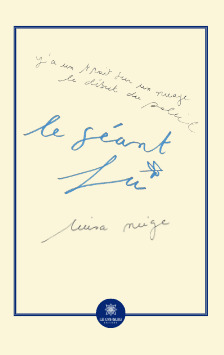 y'a un trait sur un nuage
le début du soleil
le géant
Lu
luisa neige
LE LYS BLEU
ÉDITIONS